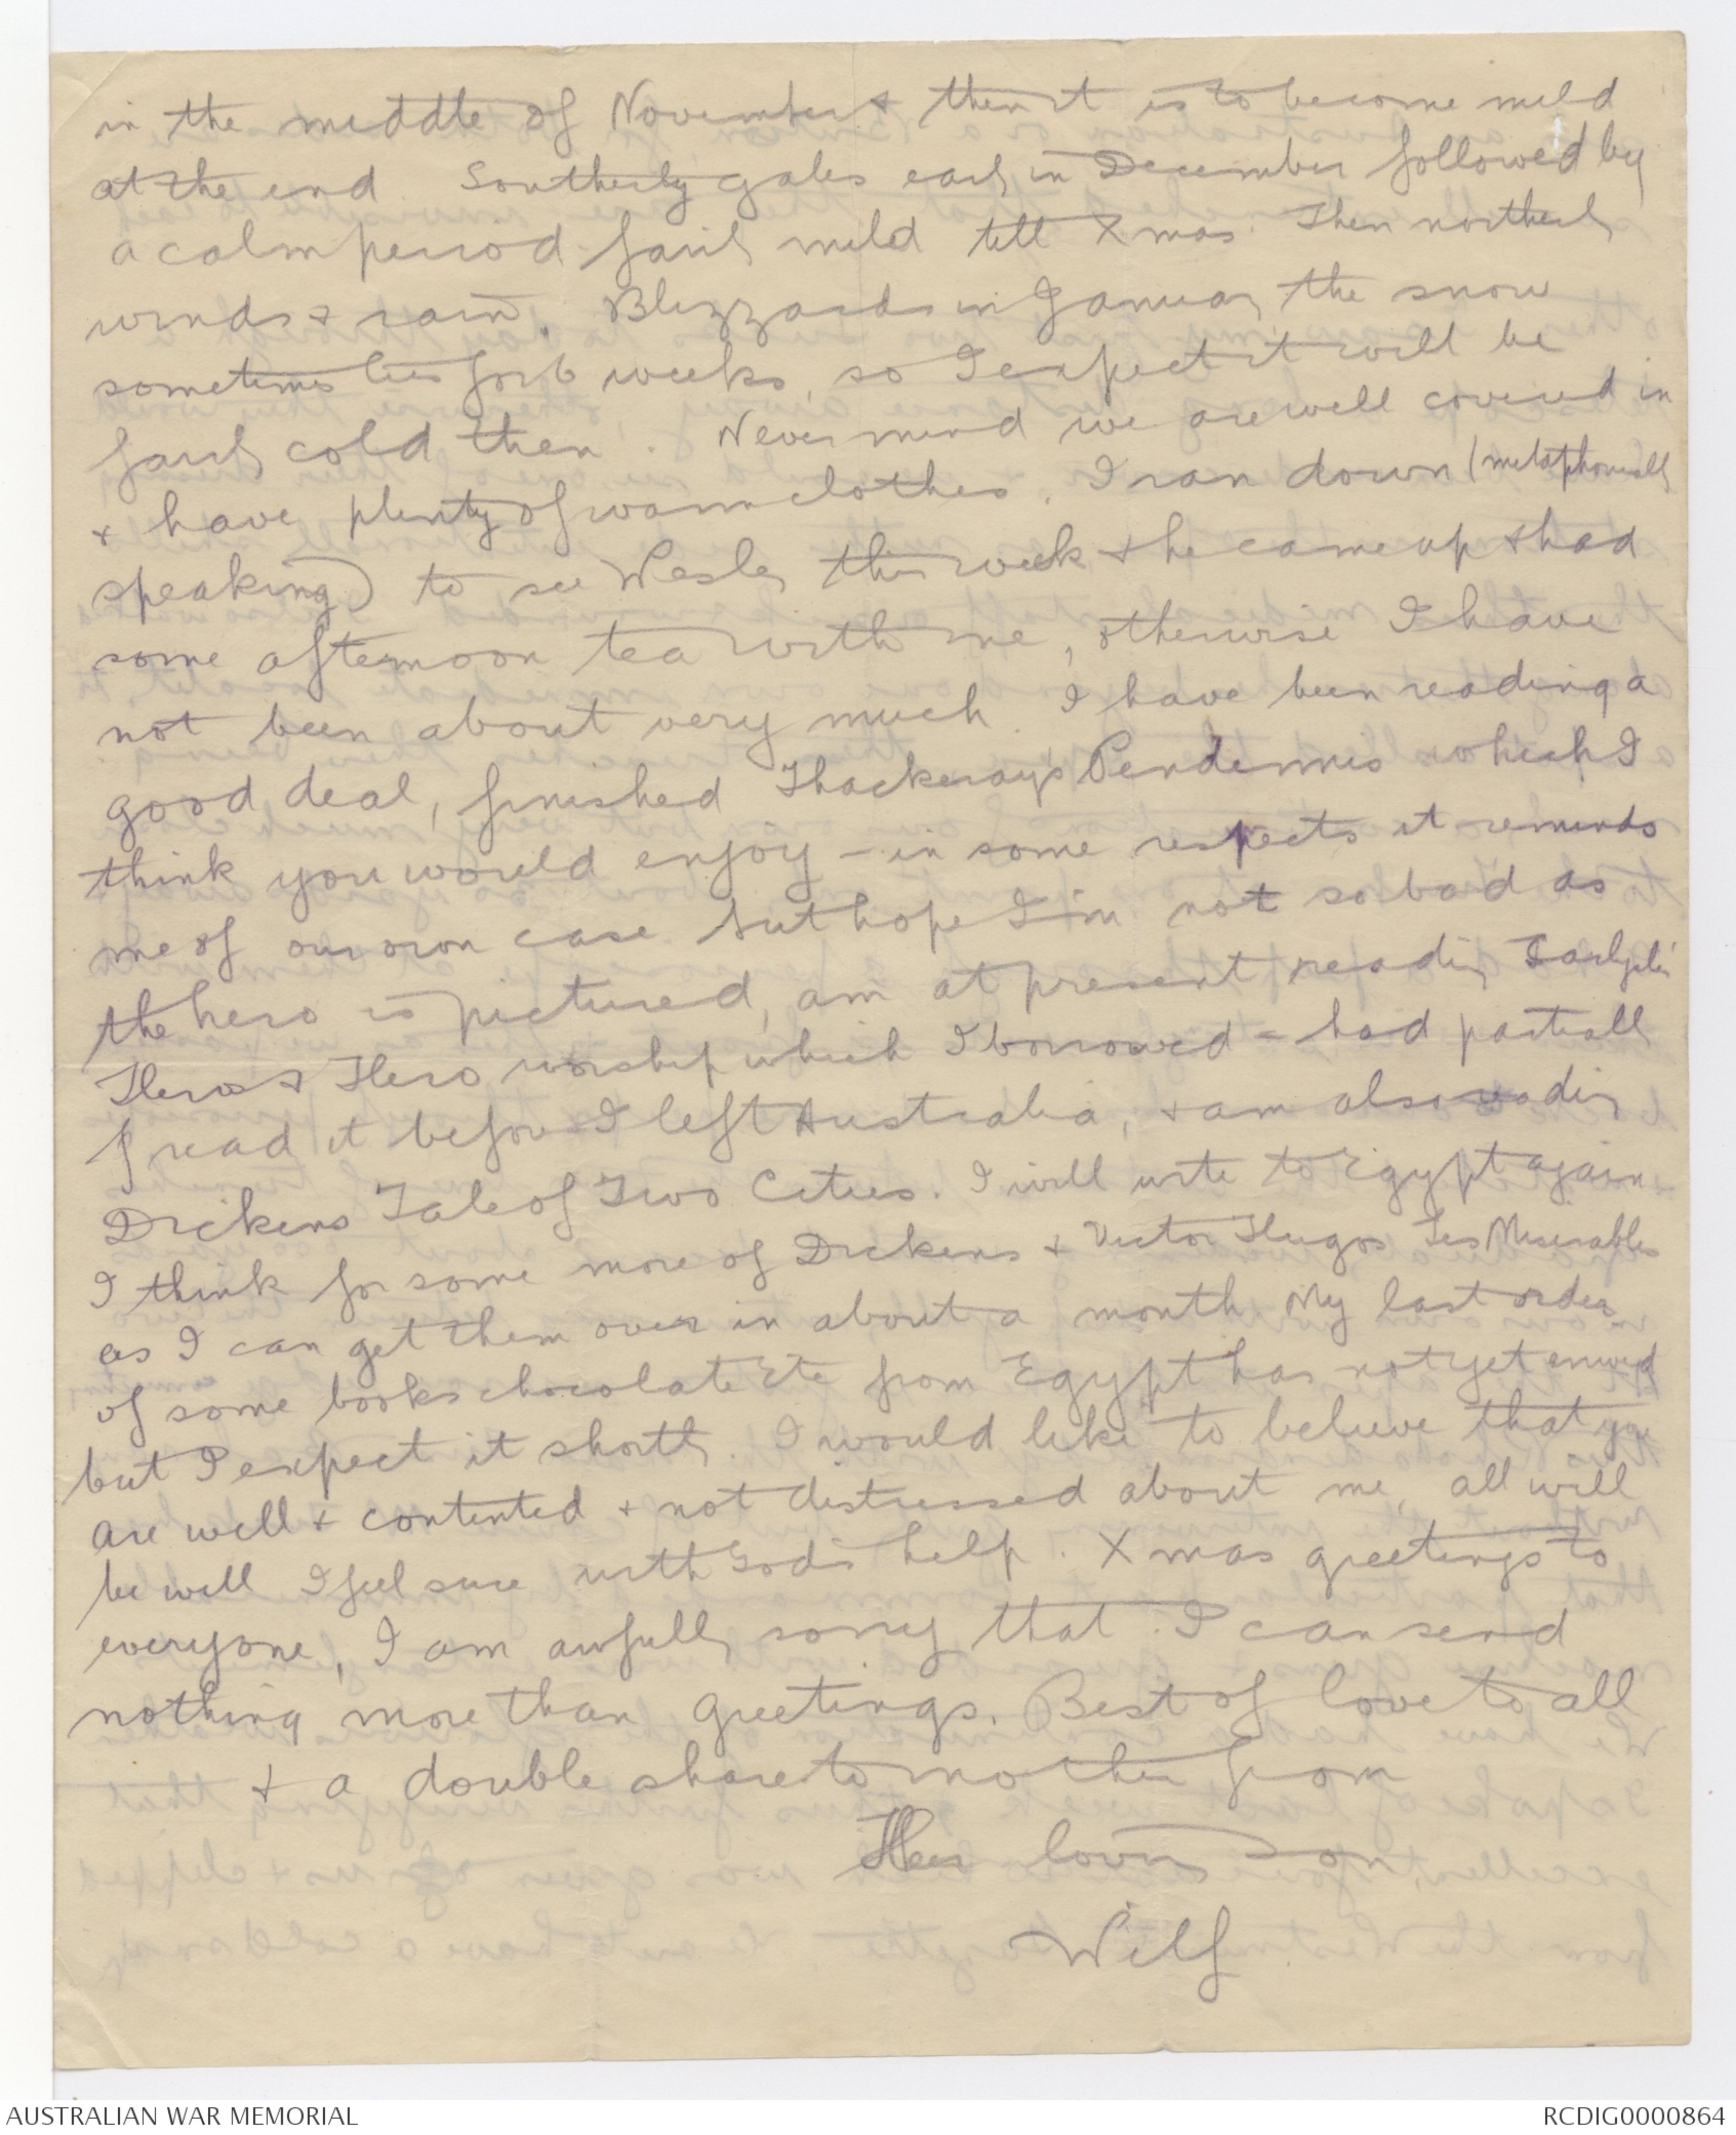 in the middle of November & then it is to become mild
at the end Southerly gales early in December followed by
a calm period fairly mild till Xmas. Then northerly
winds & rain. Blizzards in January the snow
sometimes lies for 6 weeks, so I expect it will be
fairly cold then. Never mind we are well covered in
& have plenty of warm clothes. I ran down (metaphorically
speaking) to see Wesley this week & he came up & had
some afternoon tea with me, otherwise I have
not been about very much. I have been reading a
good deal, finished Thackeray's Pendennis which I
think you would enjoy – in some respects it reminds
me of our own case but hope I'm not so bad as
the hero is pictured, am at present reading Carlyle's
Heros & Hero worship which I borrowed – had partially
read it before I left Australia, & am also reading
Dickens Tale of Two Cities. I will write to Egypt again
I think for some more of Dickens & Victor Hugos Les Miserables
as I can get them over in about a month. My last order
of some books chocolate etc from Egypt has not yet arrived
but I expect it shortly. I would like to believe that you
are well & contented & not distressed about me, all will
be well I feel sure with God's help. Xmas greetings to
everyone, I am awfully sorry that I can send
nothing more than greetings. Best of love to all
& a double share to mother from
Her loving son
Wilf
AUSTRALIAN WAR MEMORIAL
RCDIG0000864